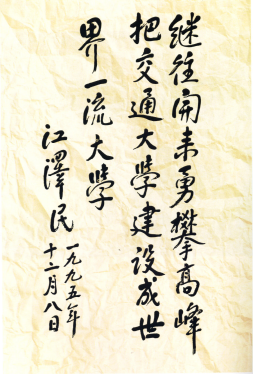 继往開来勇攀高峰
把交通大学建设成世
界一流大学
江泽民
一九九五年
十二月八日